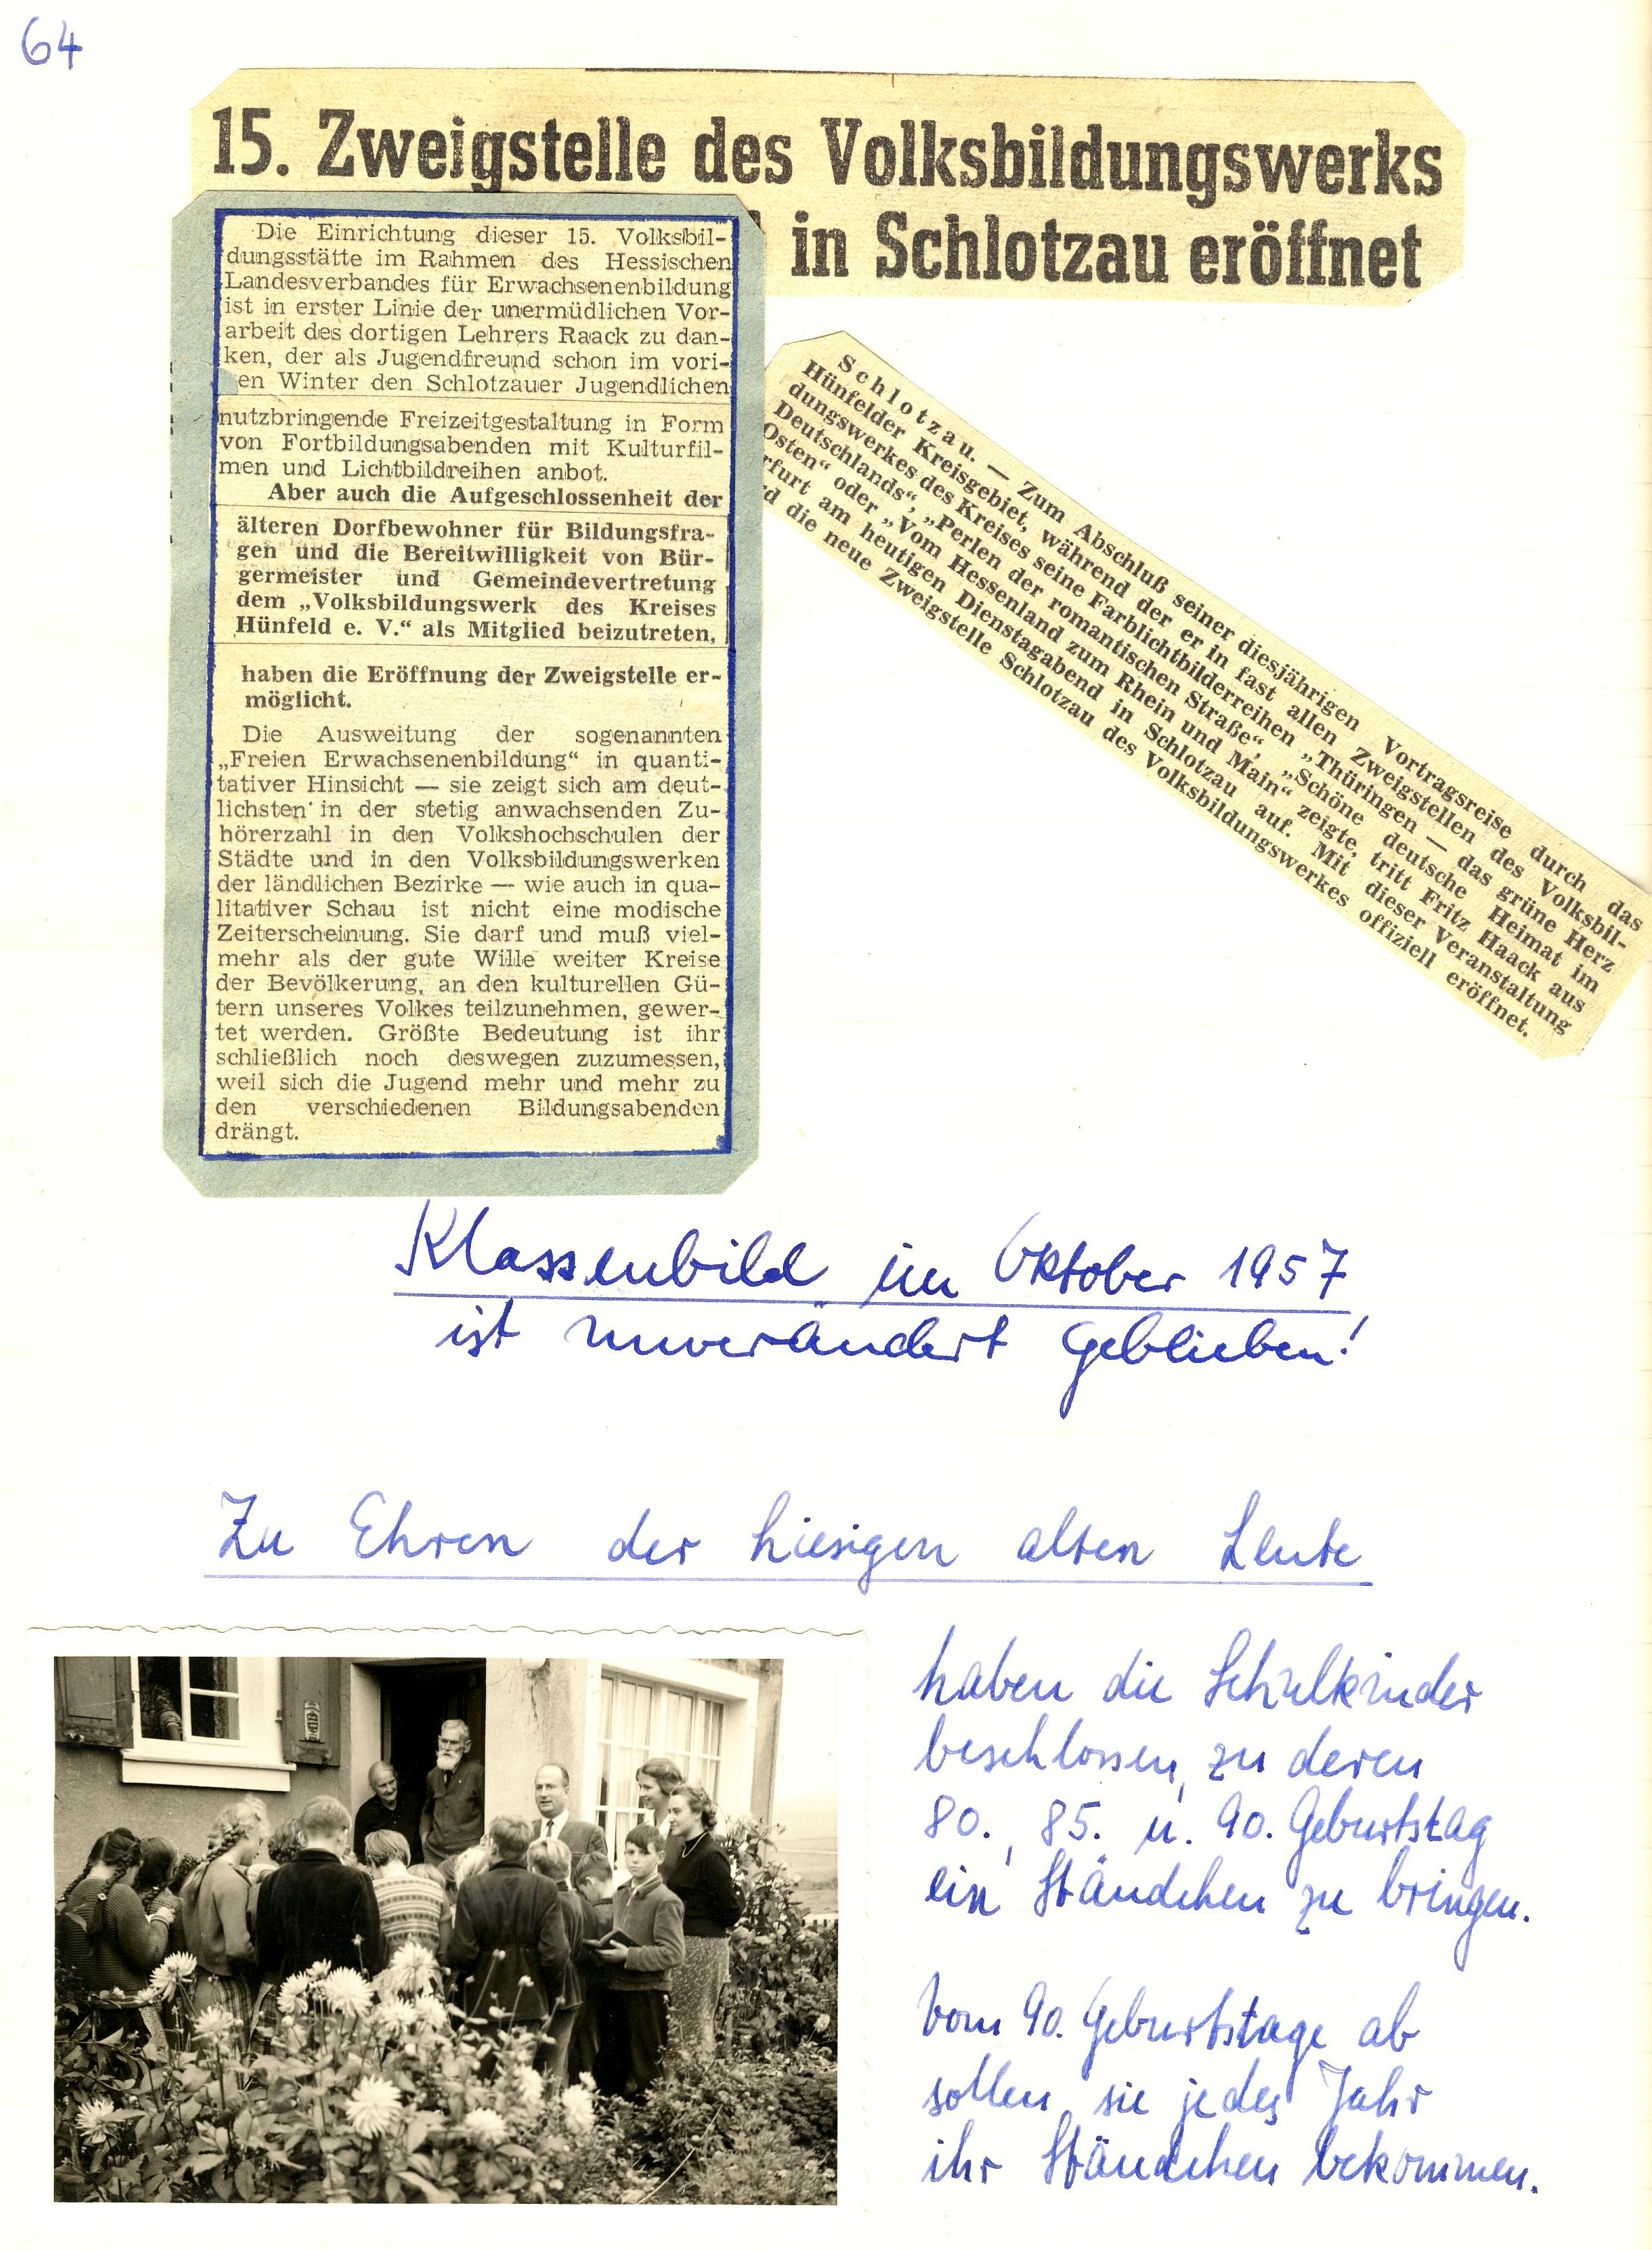 64
15. Zweigstelle des Volksbildungswerks
in Schlotzau eröffnet
Die Einrichtung dieser 15. Volksbil-
dungsstätte im Rahmen des Hessischen
Landesverbandes für Erwachsenenbildung
ist in erster Linie der unermüdlichen Vor-
arbeit des dortigen Lehrers Raack zu dan-
ken, der als Jugendfreund schon im vori-
en Winter den Schlotzauer Jugendlichen
nutzbringende Freizeitgestaltung in Form
von Fortbildungsabenden mit Kulturfil-
men und Lichtbildreihen anbot.
Aber auch die Aufgeschlossenheit der
älteren Dorfbewohner für Bildungsfra-
gen und die Bereitwilligkeit von Bür-
germeister und Gemeindevertretung
dem „Volksbildungswerk des Kreises
Hünfeld e. V.“ als Mitglied beizutreten,
haben die Eröffnung der Zweigstelle er-
möglicht.
Die Ausweitung der sogenannten
„Freien Erwachsenenbildung“ in quanti-
tativer Hinsicht — sie zeigt sich am deut-
lichsten in der stetig anwachsenden Zu-
hörerzahl in den Volkshochschulen der
Städte und in den Volksbildungswerken
der ländlichen Bezirke — wie auch in qua-
litativer Schau ist nicht eine modische
Zeiterscheinung. Sie darf und muß viel-
mehr als der gute Wille weiter Kreise
der Bevölkerung, an den kulturellen Gü-
tern unseres Volkes teilzunehmen, gewer-
tet werden. Größte Bedeutung ist ihr
schließlich noch deswegen zuzumessen,
weil sich die Jugend mehr und mehr zu
den verschiedenen Bildungsabenden
drängt.
Schlotzau. — Zum Abschluß seiner diesjährigen Vortragsreise durch das
Hünfelder Kreisgebiet, während der er in fast allen Zweigstellen des Volksbil-
dungswerkes des Kreises seine Farblichtbilderreihen „Thüringen — das grüne Herz
Deutschlands“, „Perlen der romantischen Straße“, „Schöne deutsche Heimat im
Osten“ oder „Vom Hessenland zum Rhein und Main“ zeigte, tritt Fritz Haack aus
rfurt am heutigen Dienstagabend in Schlotzau auf. Mit dieser Veranstaltung
d die neue Zweigstelle Schlotzau des Volksbildungswerkes offiziell eröffnet.
Klassenbild im Oktober 1957
ist unverändert geblieben!
Zu Ehren der hiesigen alten Leute
haben die Schulkinder
beschlossen, zu deren
80., 85. u. 90. Geburtstag
ein Ständchen zu bringen.
Vom 90. Geburtstage ab
sollen sie jedes Jahr
ihr Ständchen bekommen.